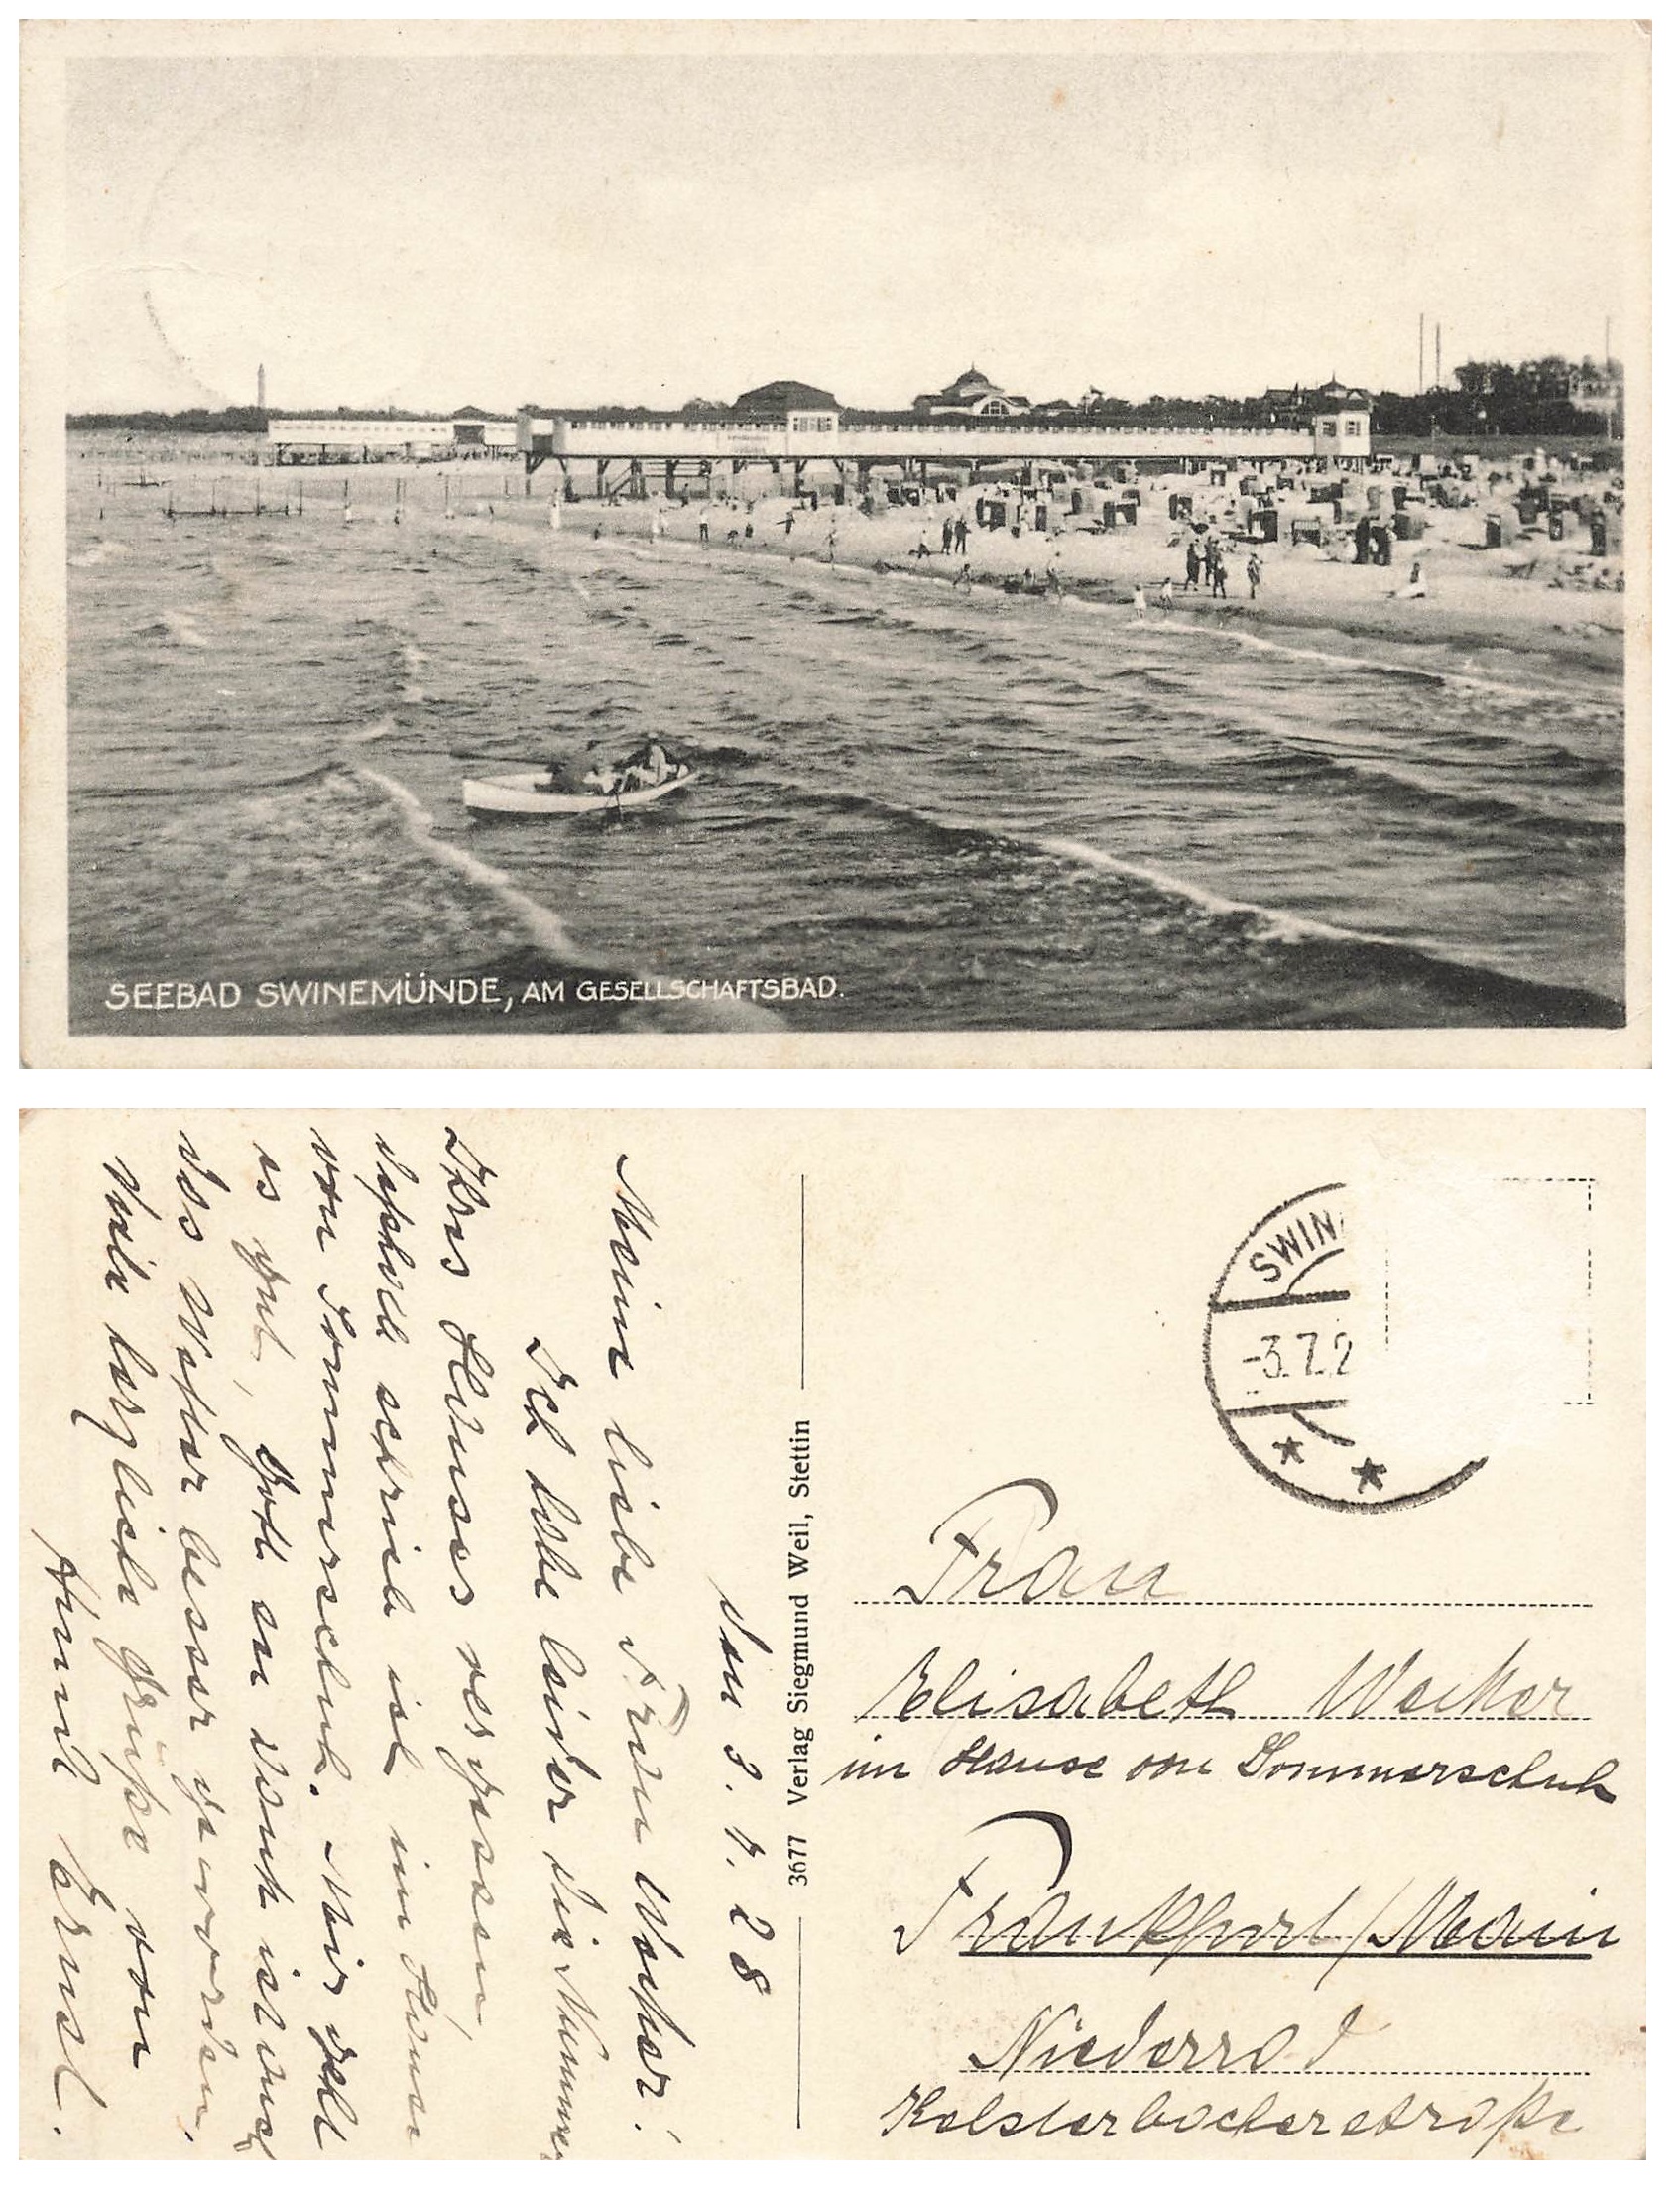 SEEBAD SWINEMÜNDE, AM GESELLSCHAFTSBAD.
den 3.7.28
Meine liebe Frau Weiker!
Ich habe leider die Nummer
Ihres Hauses vergessen,
deshalb schrieb ich im Hause
von Sommerschuh. Mir geht
es gut, Gott sei Dank ist auch
das Wetter besser geworden.
Viele herzliche Grüße von
Ernst.
3677 Verlag Siegmund Weil, Stettin
SWIN
-3.7.2
Frau
Elisabeth Weiker
im Hause von Sommerschuh
Frankfurt/Main
Niederrad
Kelsterbacherstraße